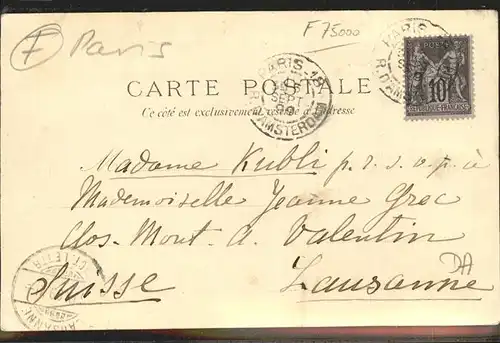 F Paris
F 75000
CARTE POSTALE
Ce côté est exclusivement réservé à l'adresse
PARIS 18
SEPT
99
R. D'AMSTERDAM
PARIS
R. D'AM
POSTES
10
REPUBLIQUE FRANÇAISE
Madame Kubli p. r. s. v. p. à
Mademoiselle Jeanne Grec
Clos-Mont. d. Valentin
Suisse Lausanne
DA
LAUSANNE